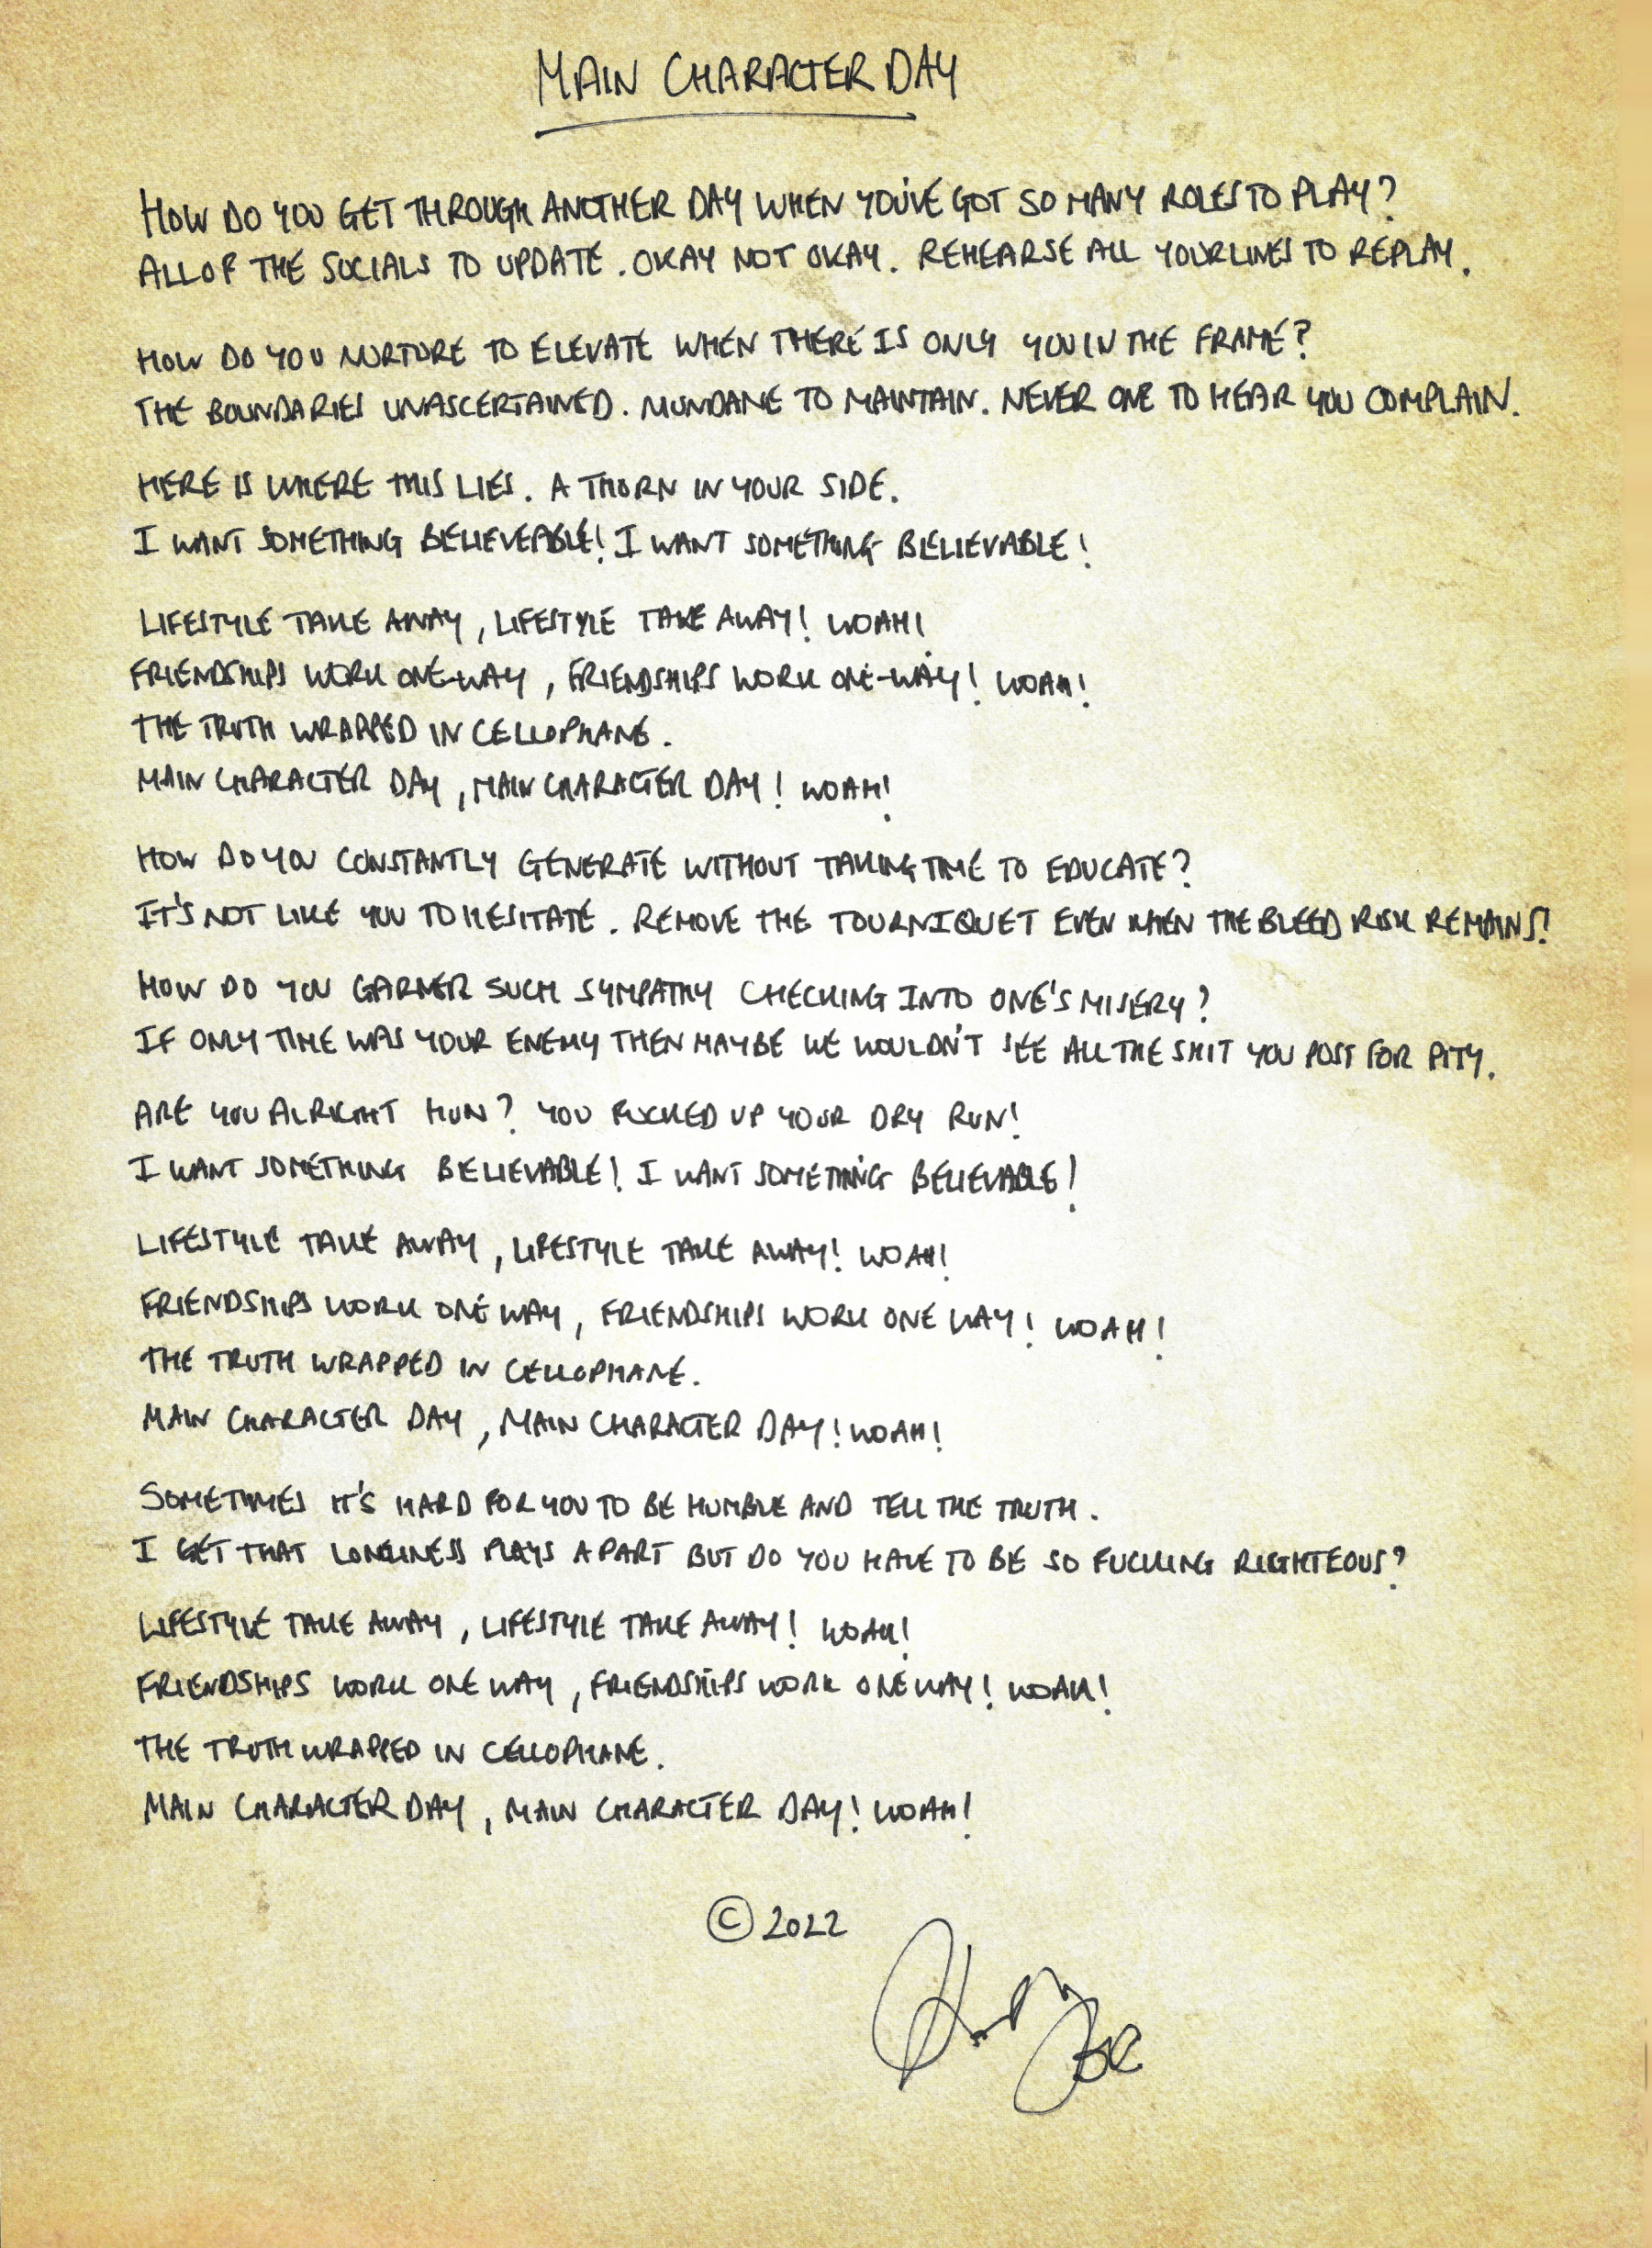 MAIN CHARACTER DAY
HOW DO YOU GET THROUGH ANOTHER DAY WHEN YOU'VE GOT SO MANY ROLES TO PLAY?
ALL OF THE SOCIALS TO UPDATE. OKAY NOT OKAY. REHEARSE ALL YOUR LINES TO REPLAY.
HOW DO YOU NURTURE TO ELEVATE WHEN THERE IS ONLY YOU IN THE FRAME?
THE BOUNDARIES UNASCERTAINED. MUNDANE TO MAINTAIN. NEVER ONE TO HEAR YOU COMPLAIN.
HERE IS WHERE THIS LIES. A THORN IN YOUR SIDE.
I WANT SOMETHING BELIEVEABLE! I WANT SOMETHING BELIEVABLE!
LIFESTYLE TAKE AWAY, LIFESTYLE TAKE AWAY! WOAH!
FRIENDSHIPS WORK ONE-WAY, FRIENDSHIPS WORK ONE-WAY! WOAH!
THE TRUTH WRAPPED IN CELLOPHANE.
MAIN CHARACTER DAY, MAIN CHARACTER DAY! WOAH!
HOW DO YOU CONSTANTLY GENERATE WITHOUT TAKING TIME TO EDUCATE?
IT'S NOT LIKE YOU TO HESITATE. REMOVE THE TOURNIQUET EVEN WHEN THE BLEED RISK REMAINS!
HOW DO YOU GARNER SUCH SYMPATHY CHECKING INTO ONE'S MISERY?
IF ONLY TIME WAS YOUR ENEMY THEN MAYBE WE WOULDN'T SEE ALL THE SHIT YOU POST FOR PITY.
ARE YOU ALRIGHT HUN? YOU FUCKED UP YOUR DRY RUN!
I WANT SOMETHING BELIEVABLE! I WANT SOMETHING BELIEVABLE!
LIFESTYLE TAKE AWAY, LIFESTYLE TAKE AWAY! WOAH!
FRIENDSHIPS WORK ONE WAY, FRIENDSHIPS WORK ONE WAY! WOAH!
THE TRUTH WRAPPED IN CELLOPHANE.
MAIN CHARACTER DAY, MAIN CHARACTER DAY! WOAH!
SOMETIMES IT'S HARD FOR YOU TO BE HUMBLE AND TELL THE TRUTH.
I GET THAT LONELINESS PLAYS A PART BUT DO YOU HAVE TO BE SO FUCKING RIGHTEOUS?
LIFESTYLE TAKE AWAY, LIFESTYLE TAKE AWAY! WOAH!
FRIENDSHIPS WORK ONE WAY, FRIENDSHIPS WORK ONE WAY! WOAH!
THE TRUTH WRAPPED IN CELLOPHANE.
MAIN CHARACTER DAY, MAIN CHARACTER DAY! WOAH!
© 2022